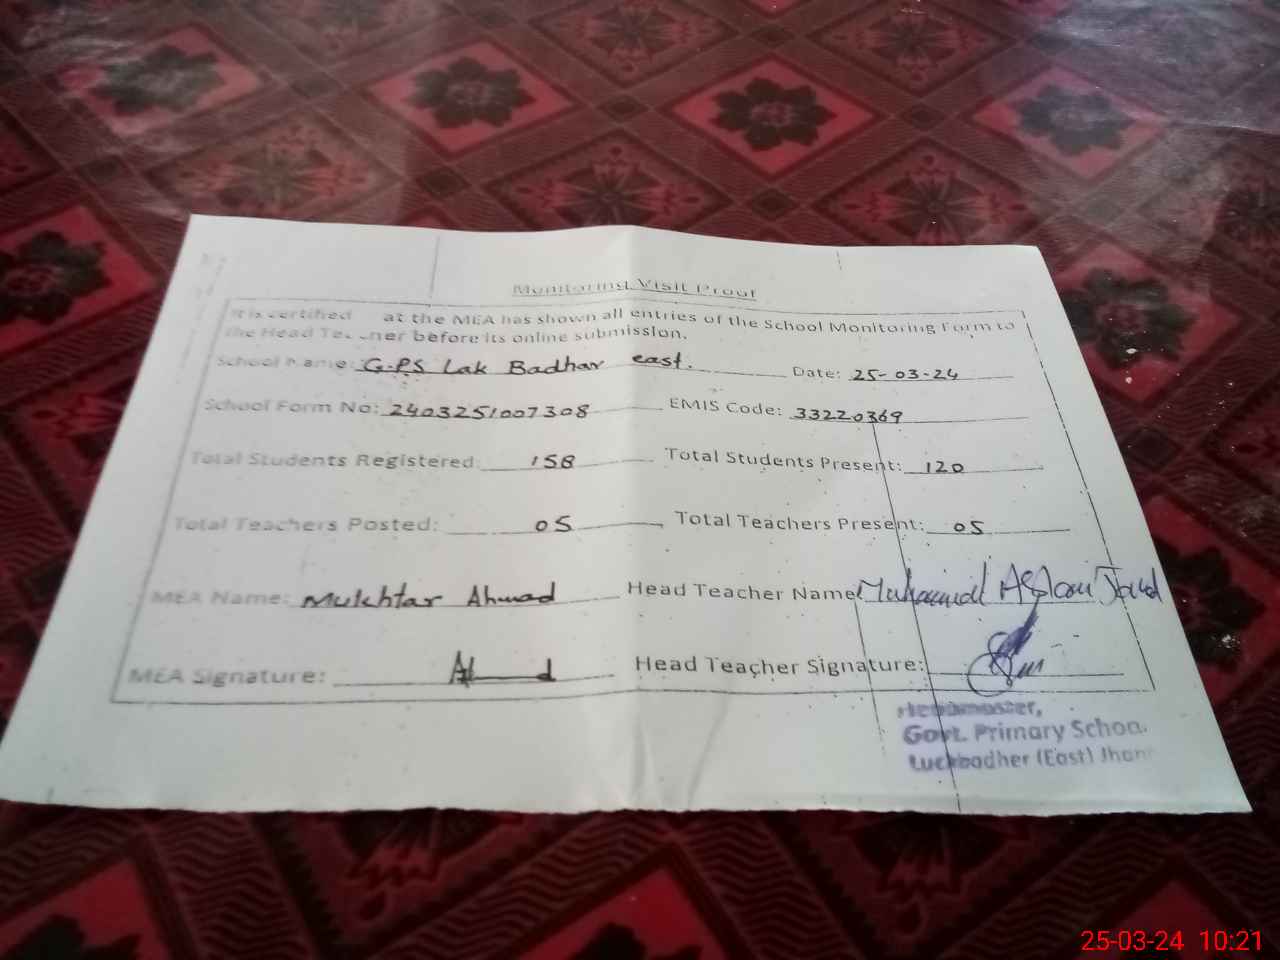 Monitoring Visit Proof
It is certified at the MEA has shown all entries of the School Monitoring Form to
the Head Teacher before its online submission.
School Name: G.P.S Lak Badhar east. Date: 25-03-24
School Form No: 2403251007308 EMIS Code: 33220369
Total Students Registered: 158 Total Students Present: 120
Total Teachers Posted: 05 Total Teachers Present: 05
MEA Name: Mukhtar Ahmad Head Teacher Name Muhammad Aslam
MEA Signature: Ahmad Head Teacher Signature:
Headmaster,
Govt. Primary School
Luckbadher (East) Jhan
25-03-24 10:21